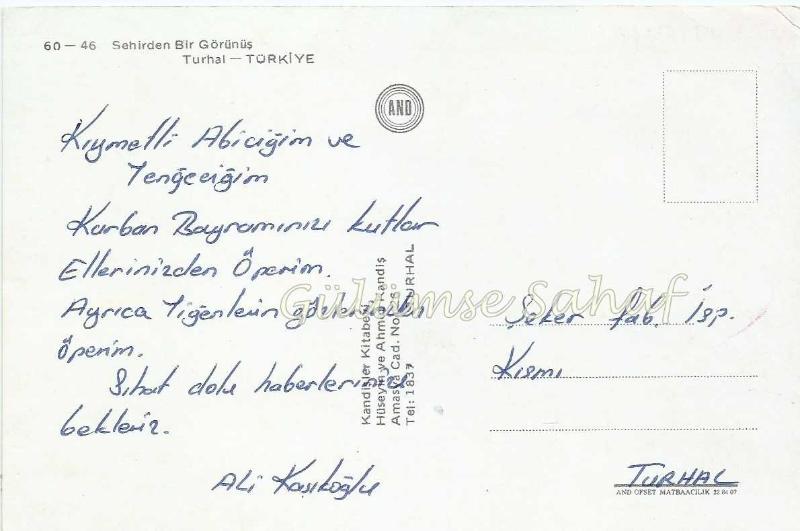 60 — 46 Sehirden Bir Görünüş
Turhal — TÜRKİYE
AND
Kıymetli Abiciğim ve
Yengeciğim
Kurban Bayramınızı kutlar
Ellerinizden Öperim.
Ayrıca Yiğenlerin gözlerinden
öperim.
Sıhat dolu haberlerinizi
bekleriz.
Ali Kaşıkoğlu
Kandişler Kitabevi
Hüseyin ve Ahmet Kandiş
Amasya Cad. No.
TURHAL
Tel: 1837
Gülümse Sahaf
Şeker fab. İsp.
Kısmı
TURHAL
AND OFSET MATBAACILIK 22 84 07